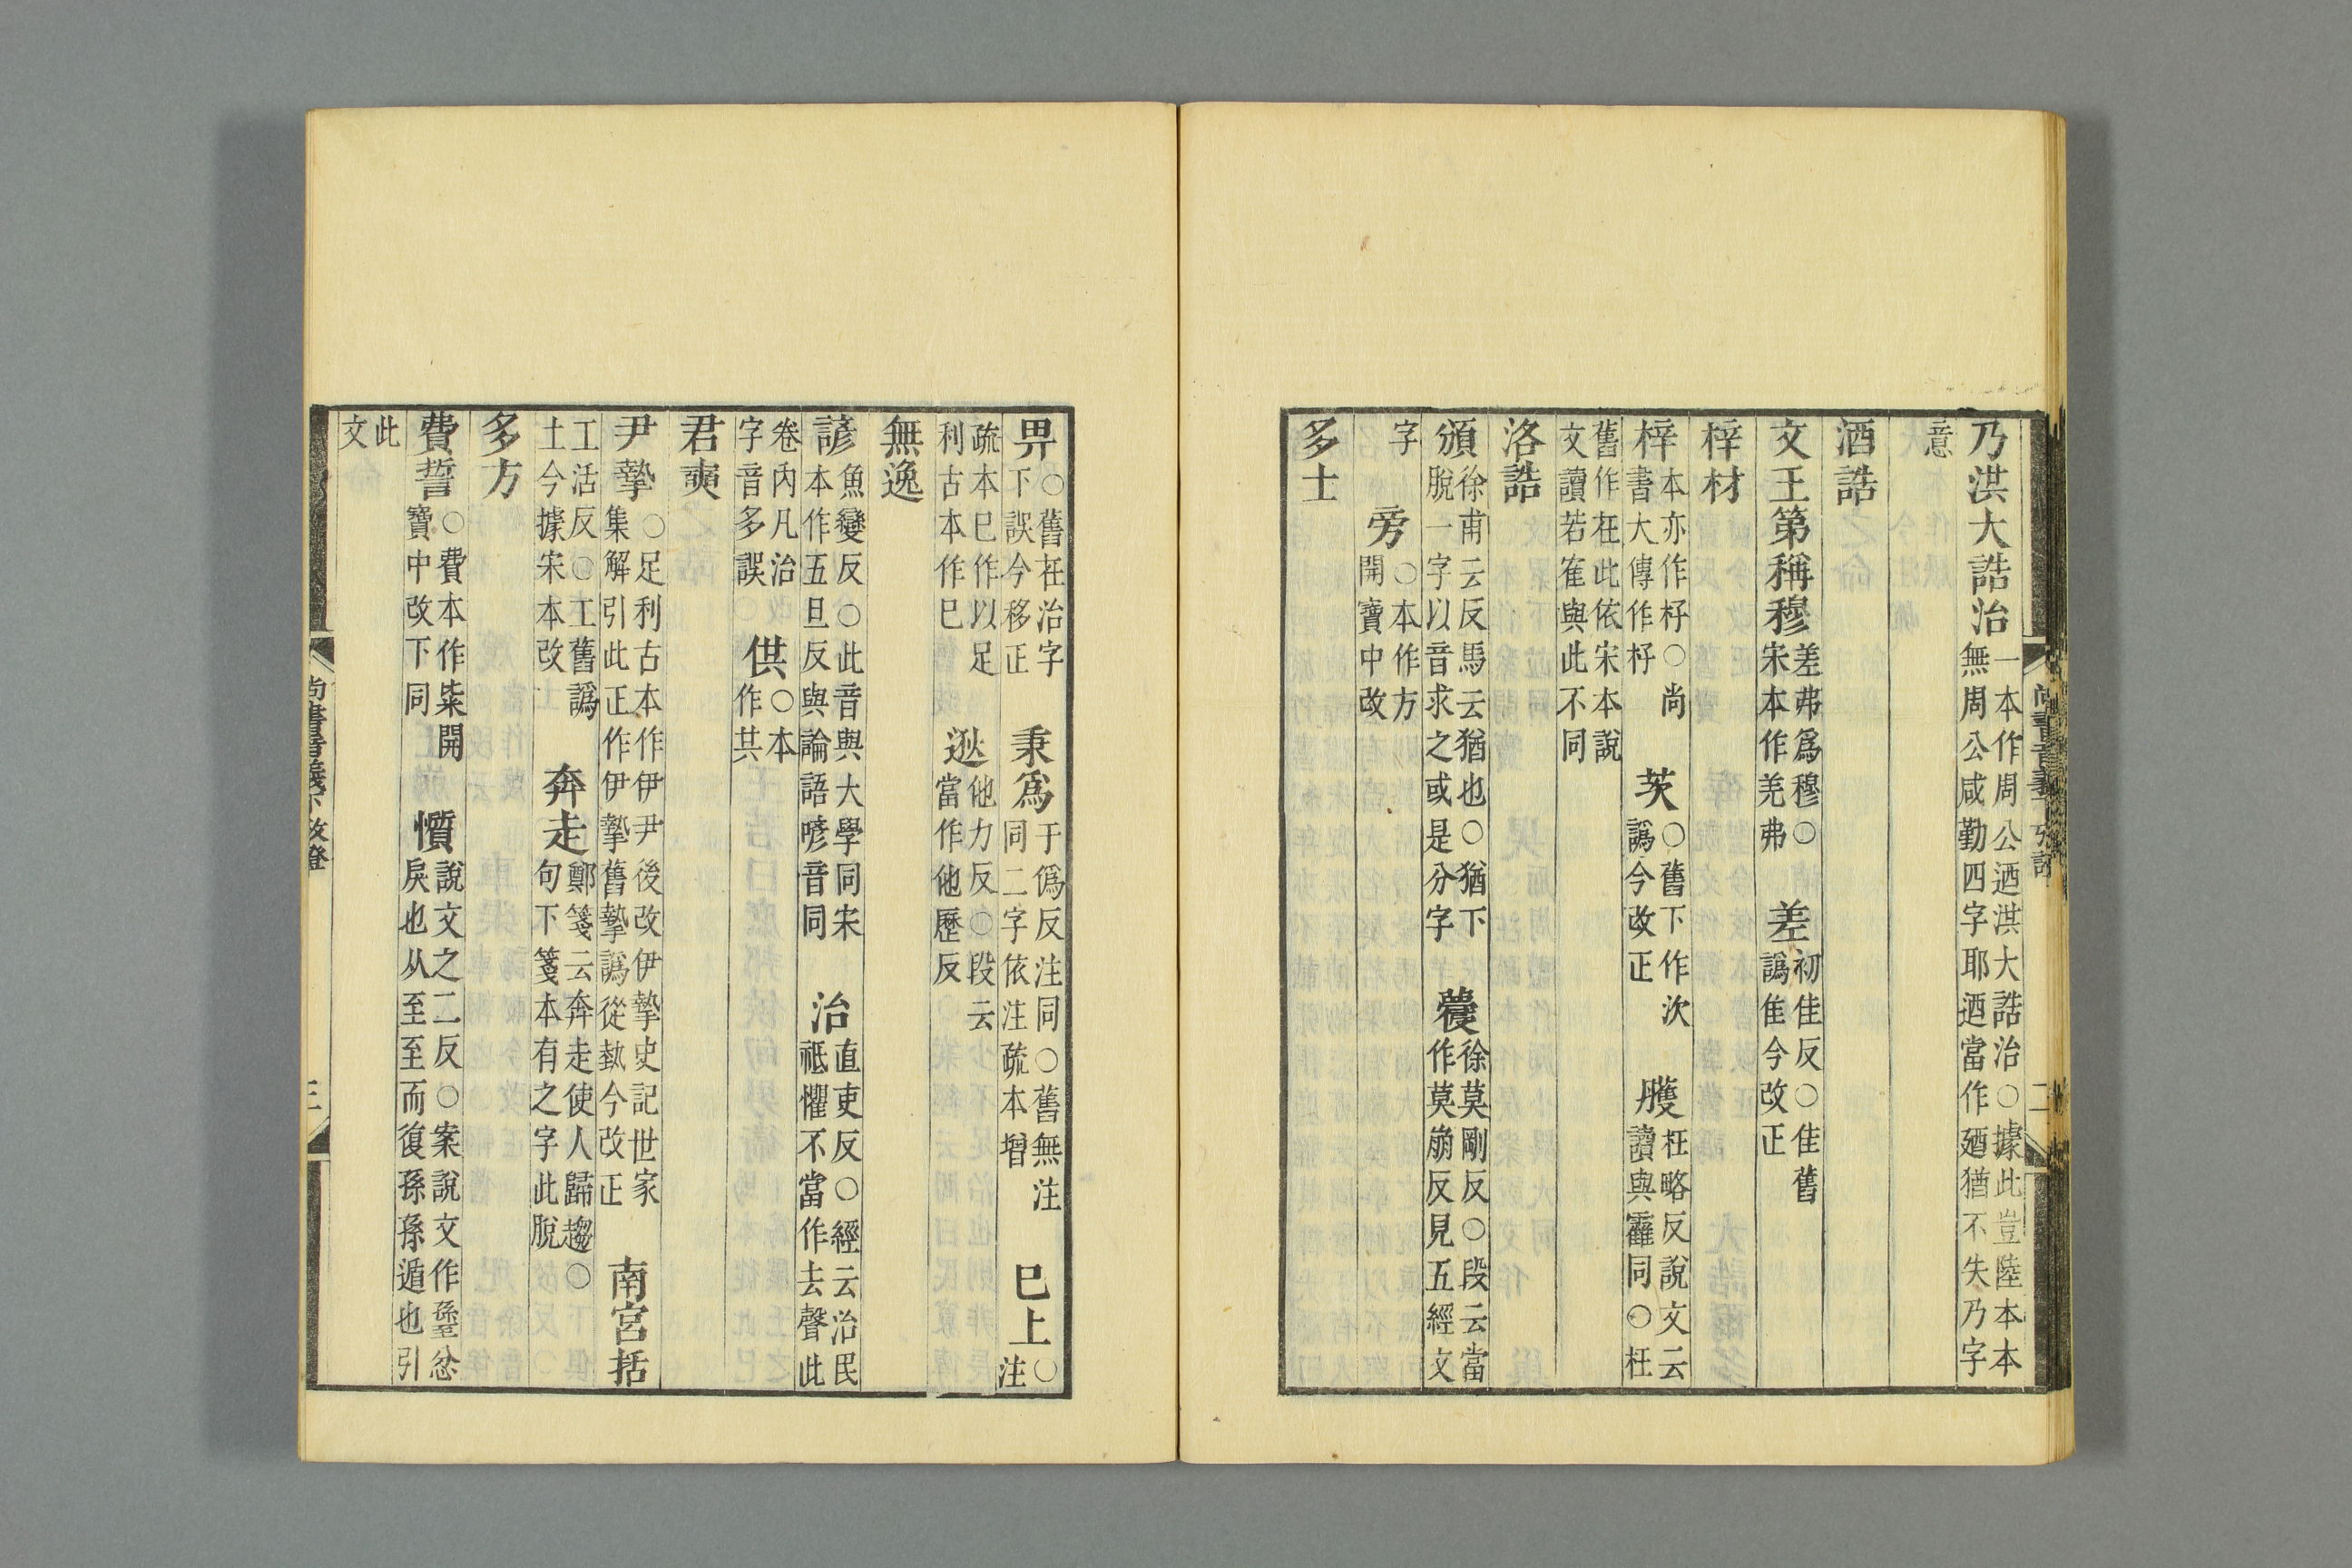 乃洪大誥治一本作周公迺洪大誥治○據此豈陸本本無周公咸勤四字耶迺當作廼猶不失乃字
意
酒誥
文王第稱穆差弗爲穆○宋本作羌弗 差初佳反○佳舊譌隹今改正
梓材
梓本亦作杍○尚書大傳作杍 茨○舊下作次譌今改正 雘枉略反說文云讀與霍同○枉
舊作枉此依宋本說文讀若隺與此不同
洛誥
頒徐甫云反馬云猶也○猶下脫一字以音求之或是分字 蘉徐莫剛反○段云當作莫崩反見五經文
字 旁○本作方開寶中改
多士
畀○舊在治字下誤今移正 秉爲于僞反注同○舊無注同二字依注疏本增 巳上○注
疏本巳作以足利古本作巳 逖他力反○段云當作他歷反
無逸
諺魚變反○此音與大學同宋本作五旦反與論語喭音同 治直吏反○經云治民祗懼不當作去聲此
卷內凡治字音多誤 供○本作共
君奭
尹摯○足利古本作伊尹後改伊摯史記世家集解引此正作伊摯舊摯譌從執今改正 南宮括
工活反○工舊譌土今據宋本改 奔走鄭箋云奔走使人歸趨○句下箋本有之字此脫
多方
費誓○費本作粊開寶中改下同 懫說文之二反○案說文作𦤶忿戾也从至至而復孫孫遁也引
此文
尚書音義下攷證
二
尚書音義下攷證
三